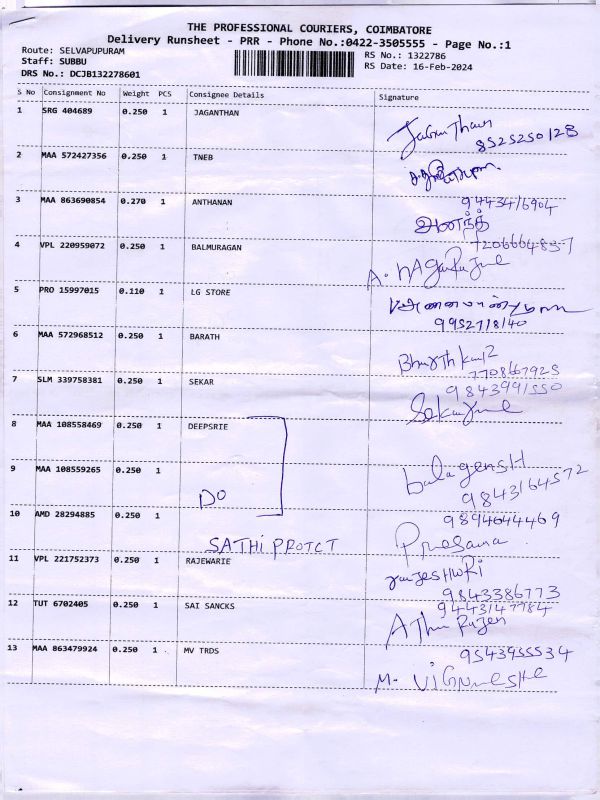 THE PROFESSIONAL COURIERS, COIMBATORE
Delivery Runsheet - PRR - Phone No.:0422-3505555 - Page No.:1
Route: SELVAPUPURAM
Staff: SUBBU
DRS No.: DCJB132278601
RS No.: 1322786
RS Date: 16-Feb-2024
S No Consignment No Weight PCS Consignee Details Signature
1 SRG 404689 0.250 1 JAGANTHAN
8525250128
2 MAA 572427356 0.250 1 TNEB
3 MAA 863690854 0.270 1 ANTHANAN 9443416904
4 VPL 220959072 0.250 1 BALMURAGAN 7206664837
A. NAgaRajune
5 PRO 15997015 0.110 1 LG STORE
9952718140
6 MAA 572968512 0.250 1 BARATH
7708667925
7 SLM 339758381 0.250 1 SEKAR 9843991550
8 MAA 108558469 0.250 1 DEEPSRIE
9 MAA 108559265 0.250 1 balagensH
DO 9843164572
10 AMD 28294885 0.250 1 9894644469
SATHI PROTCT Prasana
11 VPL 221752373 0.250 1 RAJEWARIE ranjesHWRi
9843386773
12 TUT 6702405 0.250 1 SAI SANCKS 9443147784
13 MAA 863479924 0.250 1 MV TRDS 9543955534
M.